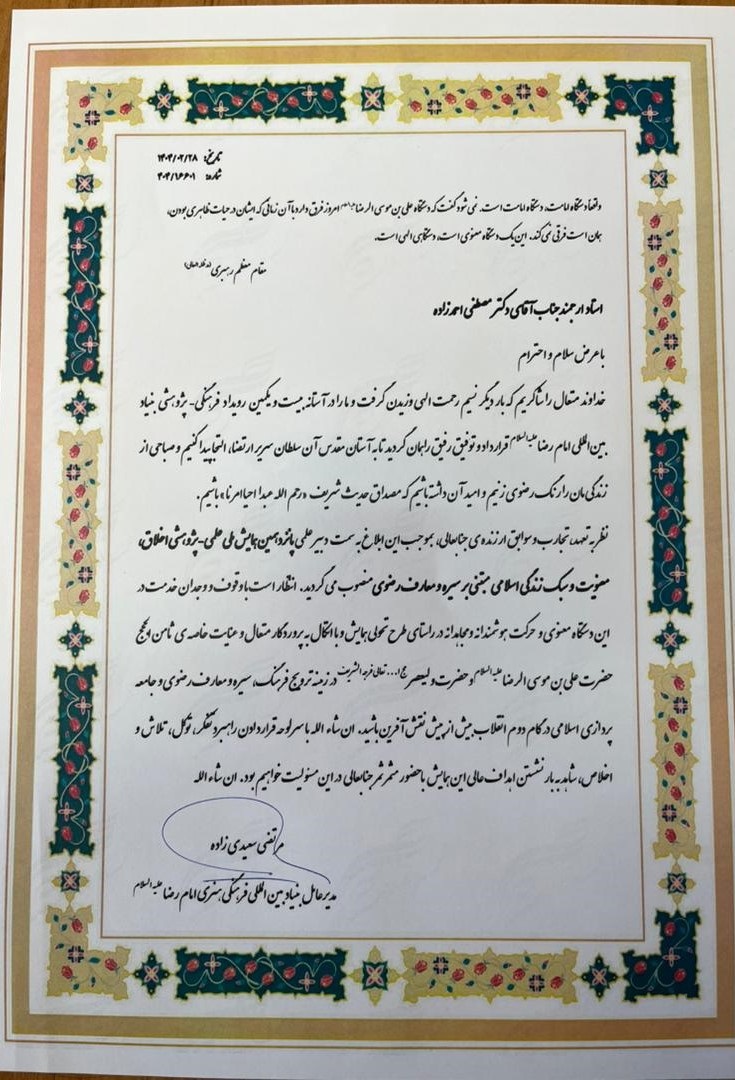 تاریخ: ۱۴۰۴/۰۲/۲۸
شماره: ۴۰۴/۱۶۶۰۱
واقعا دستگاه امامت، دستگاه امامت است. نمی شود گفت که دستگاه علی بن موسی الرضا علیه السلام امروز فرق دارد با آن زمانی که ایشان در حیات ظاهری بودن،
همان است فرقی نمی کند. این یک دستگاه معنوی است، دستگاهی الهی است.
مقام معظم رهبری (مد ظله العالی)
استاد ارجمند جناب آقای دکتر مصطفی احمدزاده
با عرض سلام و احترام
خداوند متعال را شاکریم که بار دیگر نسیم رحمت الهی وزیدن گرفت و ما را در آستانه بیست و یکمین رویداد فرهنگی- پژوهشی بنیاد
بین المللی امام رضا علیه السلام قرار داد و توفیق رفیق راهمان گردید تا به آستان مقدس آن سلطان سریر ارتضا، التجا پیدا کنیم و صباحی از
زندگی مان را رنگ رضوی زنیم و امید آن داشته باشیم که مصداق حدیث شریف «رحم الله عبدا احیا امرنا» باشیم.
نظر به تعهد، تجارب و سوابق ارزنده ی جنابعالی، بموجب این ابلاغ به سمت دبیر علمی پانزدهمین همایش ملی علمی- پژوهشی اخلاق،
معنویت و سبک زندگی اسلامی مبتنی بر سیره و معارف رضوی منصوب می گردید. انتظار است با وقوف و وجدان خدمت در
این دستگاه معنوی و حرکت هوشمندانه و مجاهدانه در راستای طرح تحولی همایش و با اتکال به پروردگار متعال و عنایت خاصه ی ثامن الحجج
حضرت علی بن موسی الرضا علیه السلام و حضرت ولیعصر عج ا... تعالی فرجه الشریف در زمینه ترویج فرهنگ، سیره و معارف رضوی و جامعه
پردازی اسلامی در گام دوم انقلاب بیش از پیش نقش آفرین باشید. ان شاء الله با سرلوحه قرار دادن راهبرد تفکر، توکل، تلاش و
اخلاص، شاهد به بار نشستن اهداف عالی این همایش با حضور مثمر ثمر جنابعالی در این مسئولیت خواهیم بود. ان شاء الله
مرتضی سعیدی زاده
مدیرعامل بنیاد بین المللی فرهنگی هنری امام رضا علیه السلام